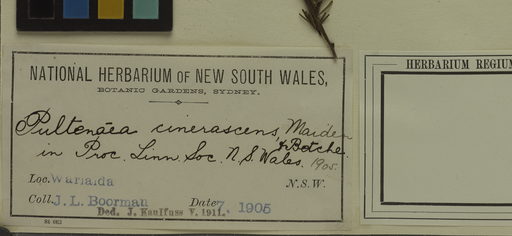 NATIONAL HERBARIUM OF NEW SOUTH WALES,
BOTANIC GARDENS, SYDNEY.
Pultenaea cinerascens, Maiden
& Betche
in Proc. Linn. Soc. N.S.Wales. 1905.
Loc. Warialda N.S.W.
Coll. J. L. Boorman Date 7 1905
Ded. J. Kaulfuss V. 1911.
HERBARIUM REGIUM